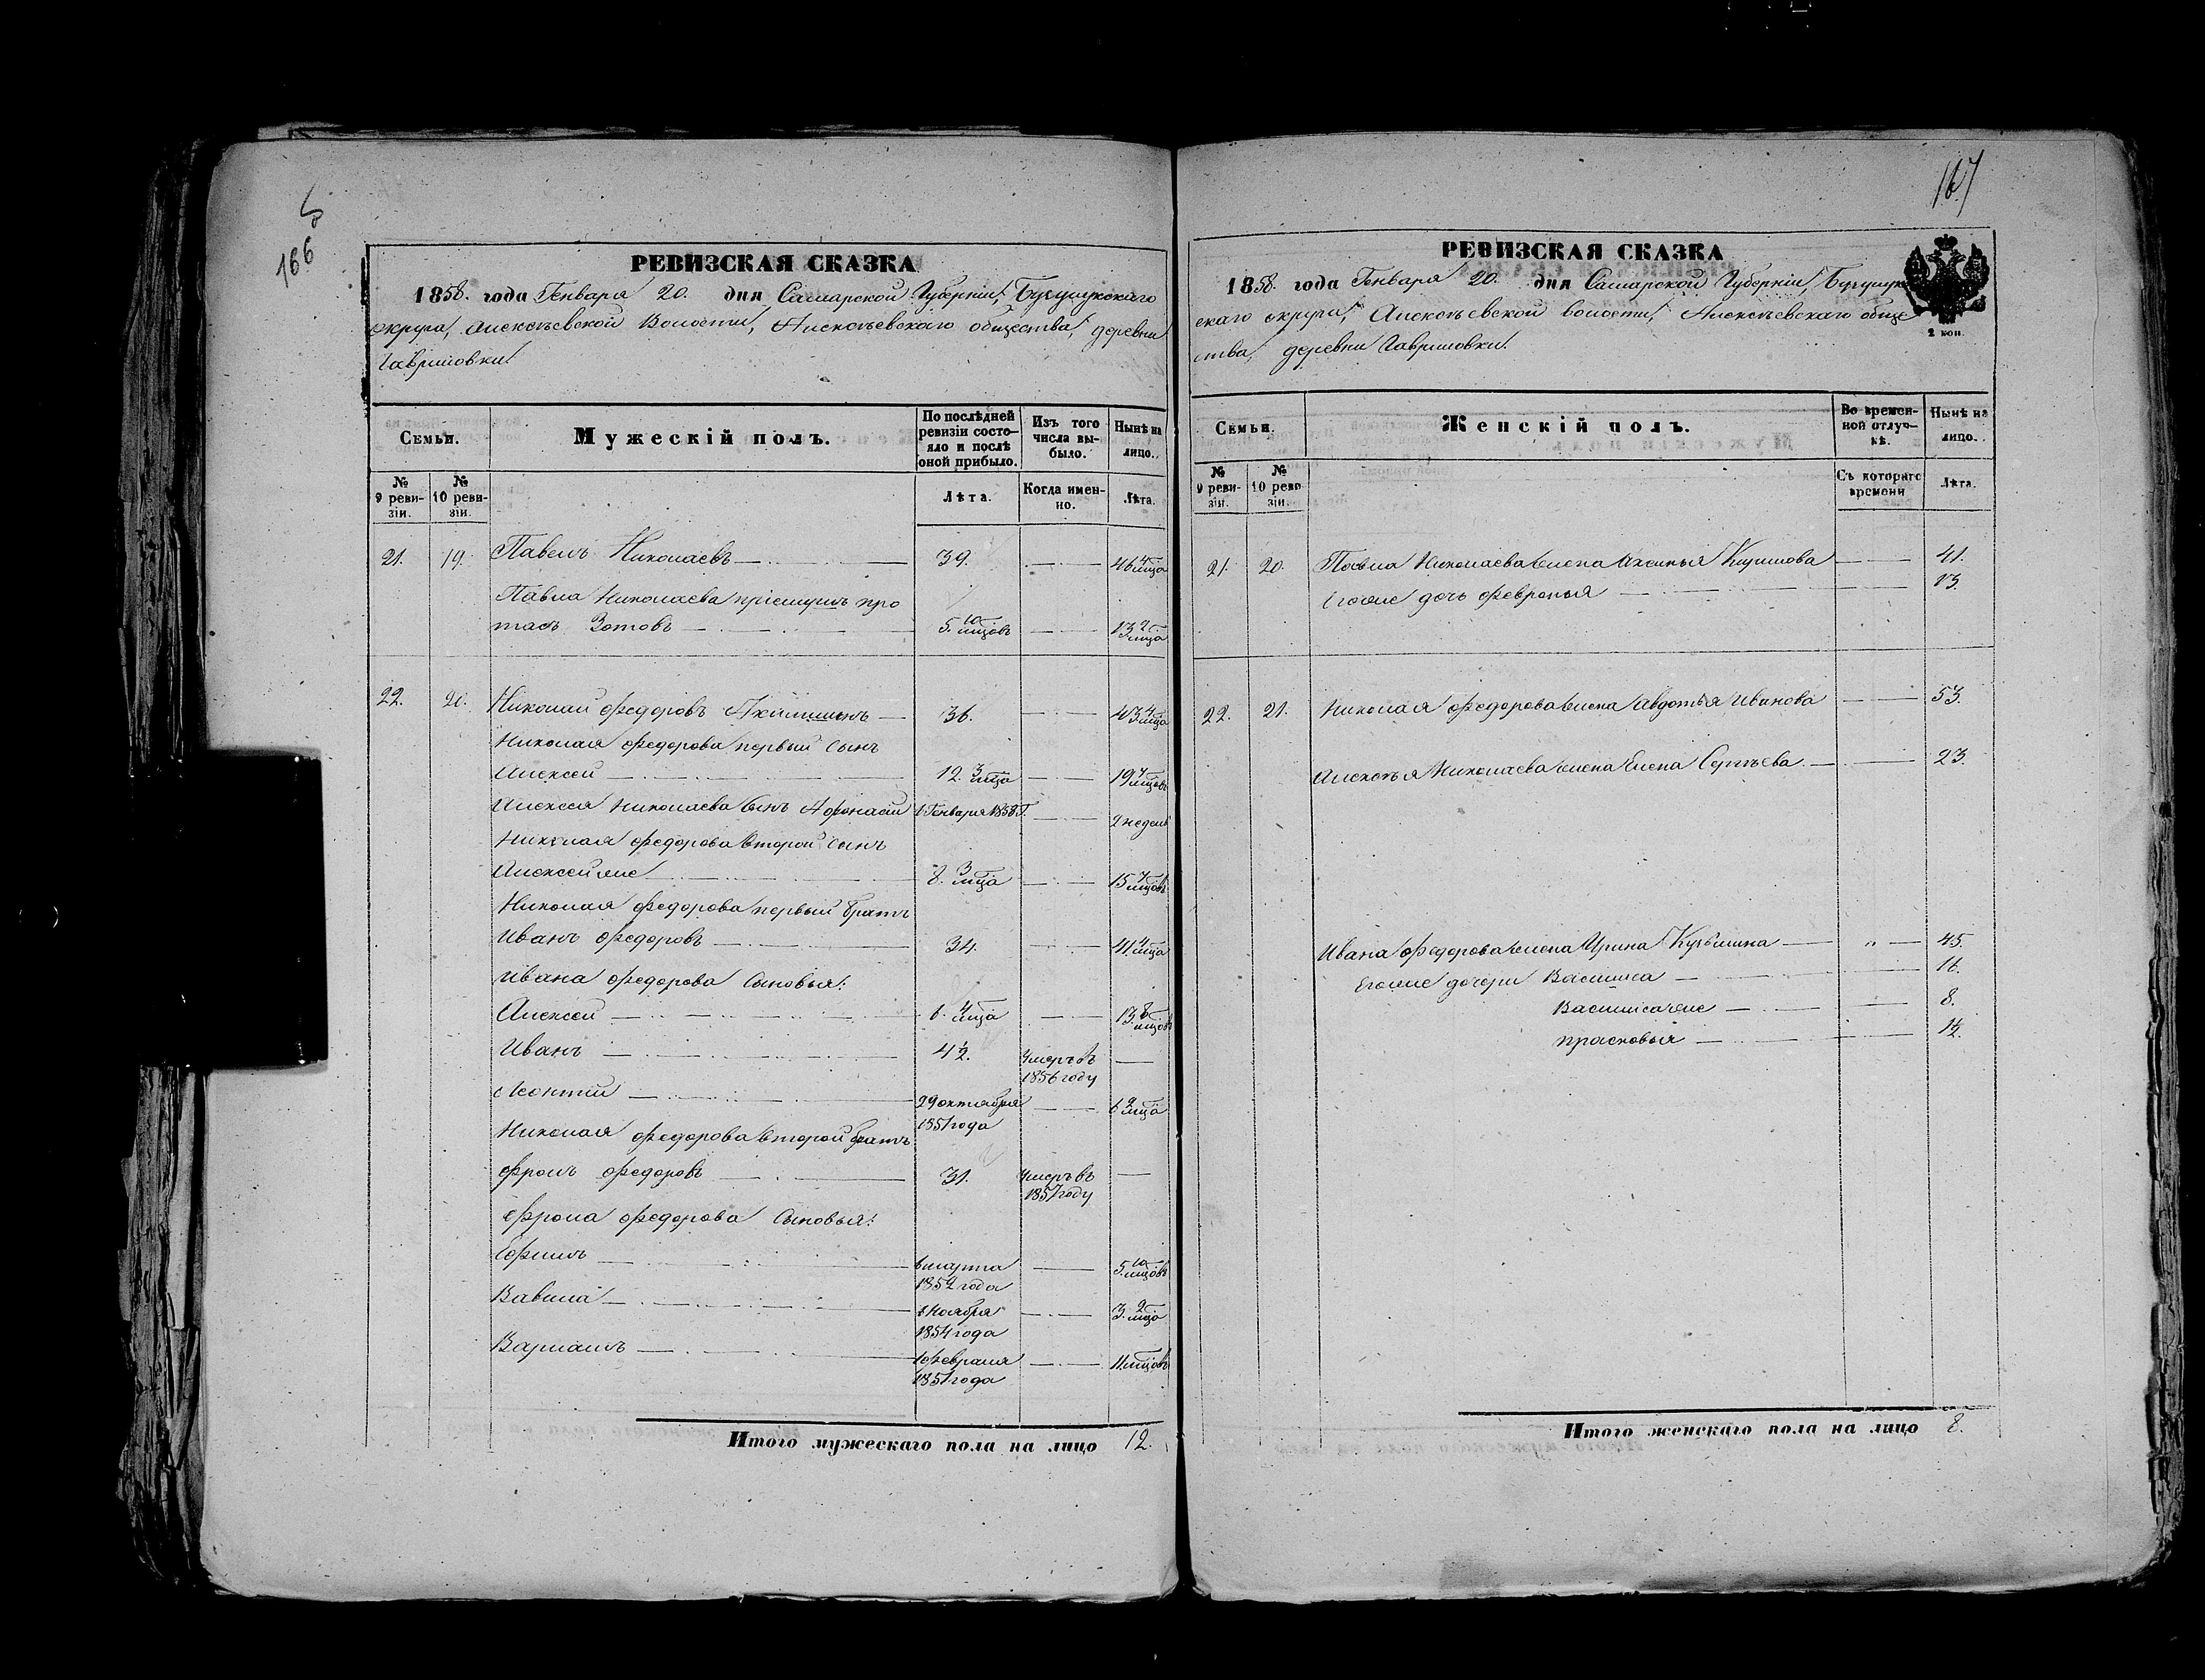 166
РЕВИЗСКАЯ СКАЗКА
1858. года Генваря 20. дня Самарской Губерніи, Бузулукскаго
округа, Алексѣевской Волости, Алексѣевскаго общества, деревни
Гавриловки.
Семьи.
Мужескій полъ.
По послѣдней ревизіи состояло и послѣ оной прибыло.
Изъ того числа выбыло.
Нынѣ на лицо.
№ 9 ревизіи.
№ 10 ревизіи.
Лѣта.
Когда именно.
Лѣта.
21. 19. Павелъ Николаевъ 39. 46 4/мца
Павла Николаева пріемышъ Про
тасъ Зотовъ 5. 10/мцовъ 13 2/мца
22. 20. Николай Федоровъ 36. 43 4/мца
Николая Федорова первый сынъ
Алексей 12. 3/мца 19 7/мцовъ
Алексея Николаева сынъ Афонасий 1 Генваря 1858 г. 2 недели
Николая Федорова второй сынъ
Алексей же 8. 3/мца 15 7/мцовъ
Николая Федорова первый братъ
Иванъ Федоровъ 34. 41. 4/мца
Ивана Федорова сыновья:
Алексей 6. 4/мца 13 8/мцовъ
Иванъ 4 1/2. Умеръ въ
1856 году
Леонтий 29 октября 6 2/мца
1851 года
Николая Федорова второй братъ
Фролъ Федоровъ 31. Умеръ въ
1857 году
Фрола Федорова сыновья:
Ефимъ 6 марта 5. 10/мцовъ
1852 года
Вавила 8 Ноября 3. 2/мца
1854 года
Варламъ 10 Февраля 11. мцовъ
1857 года
Итого мужескаго пола на лицо 12.
167
РЕВИЗСКАЯ СКАЗКА
1858. года Генваря 20. дня Самарской Губерніи, Бузулук
скаго округа, Алексѣевской волости, Алексѣевскаго обще
ства, деревни Гавриловки.
2 коп.
Семьи.
Женскій полъ.
Во временной отлучкѣ.
Нынѣ на лицо.
№ 9 ревизіи.
№ 10 ревизіи.
Съ котораго времени
Лѣта.
21. 20. Павла Николаева жена Аксинья Кирилова 41.
Его же дочь Февронья 13.
22. 21. Николая Федорова жена Авдотья Иванова 53.
Алексѣя Николаева жена Елена Сергѣева 23.
Ивана Федорова жена Ирина Кузьмина " 45.
Его же дочери Василиса 16.
Василиса же 8.
Прасковья 1 1/2.
Итого женскаго пола на лицо 8.